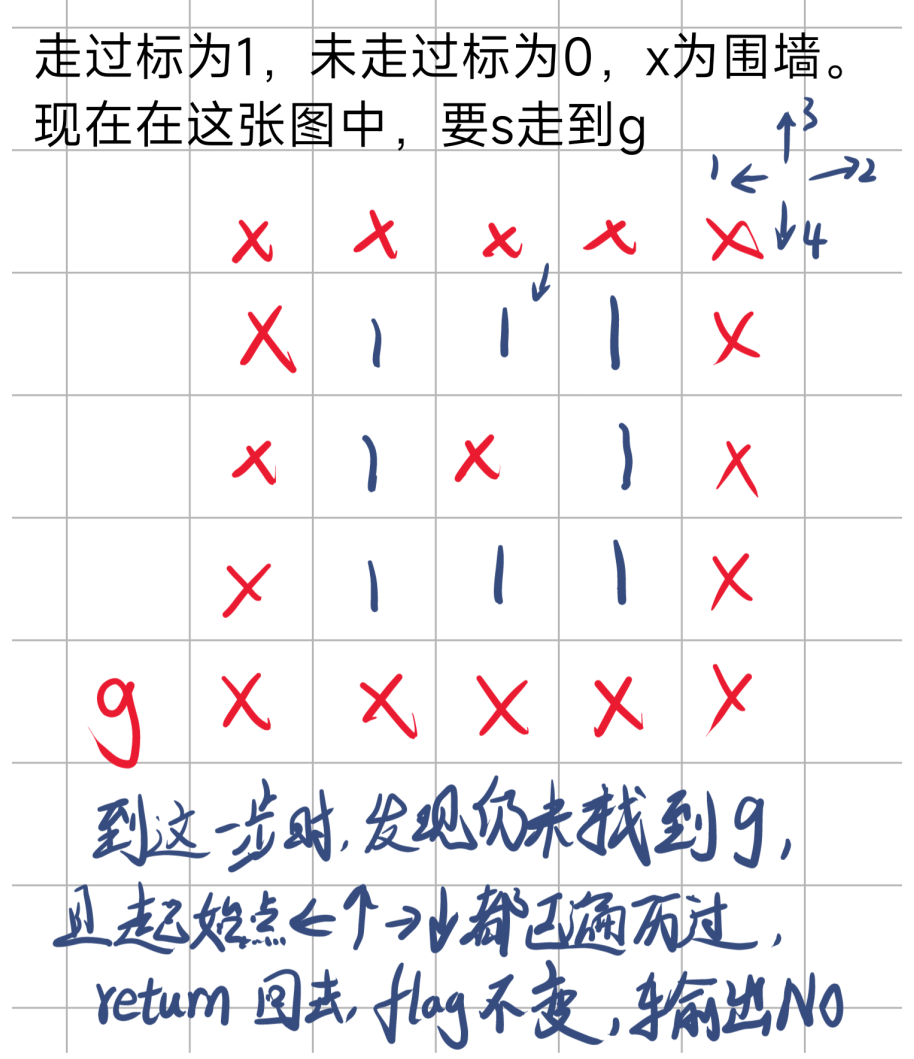 走过标为1，未走过标为0，x为围墙。
现在在这张图中，要s走到g
↑3
1← →2
x x x x x ↓4
↓
x 1 1 1 x
x 1 x 1 x
x 1 1 1 x
g x x x x x
到这一步时,发现仍未找到g,
且起始点←↑→↓都已遍历过,
return回去,flag不变,输出No